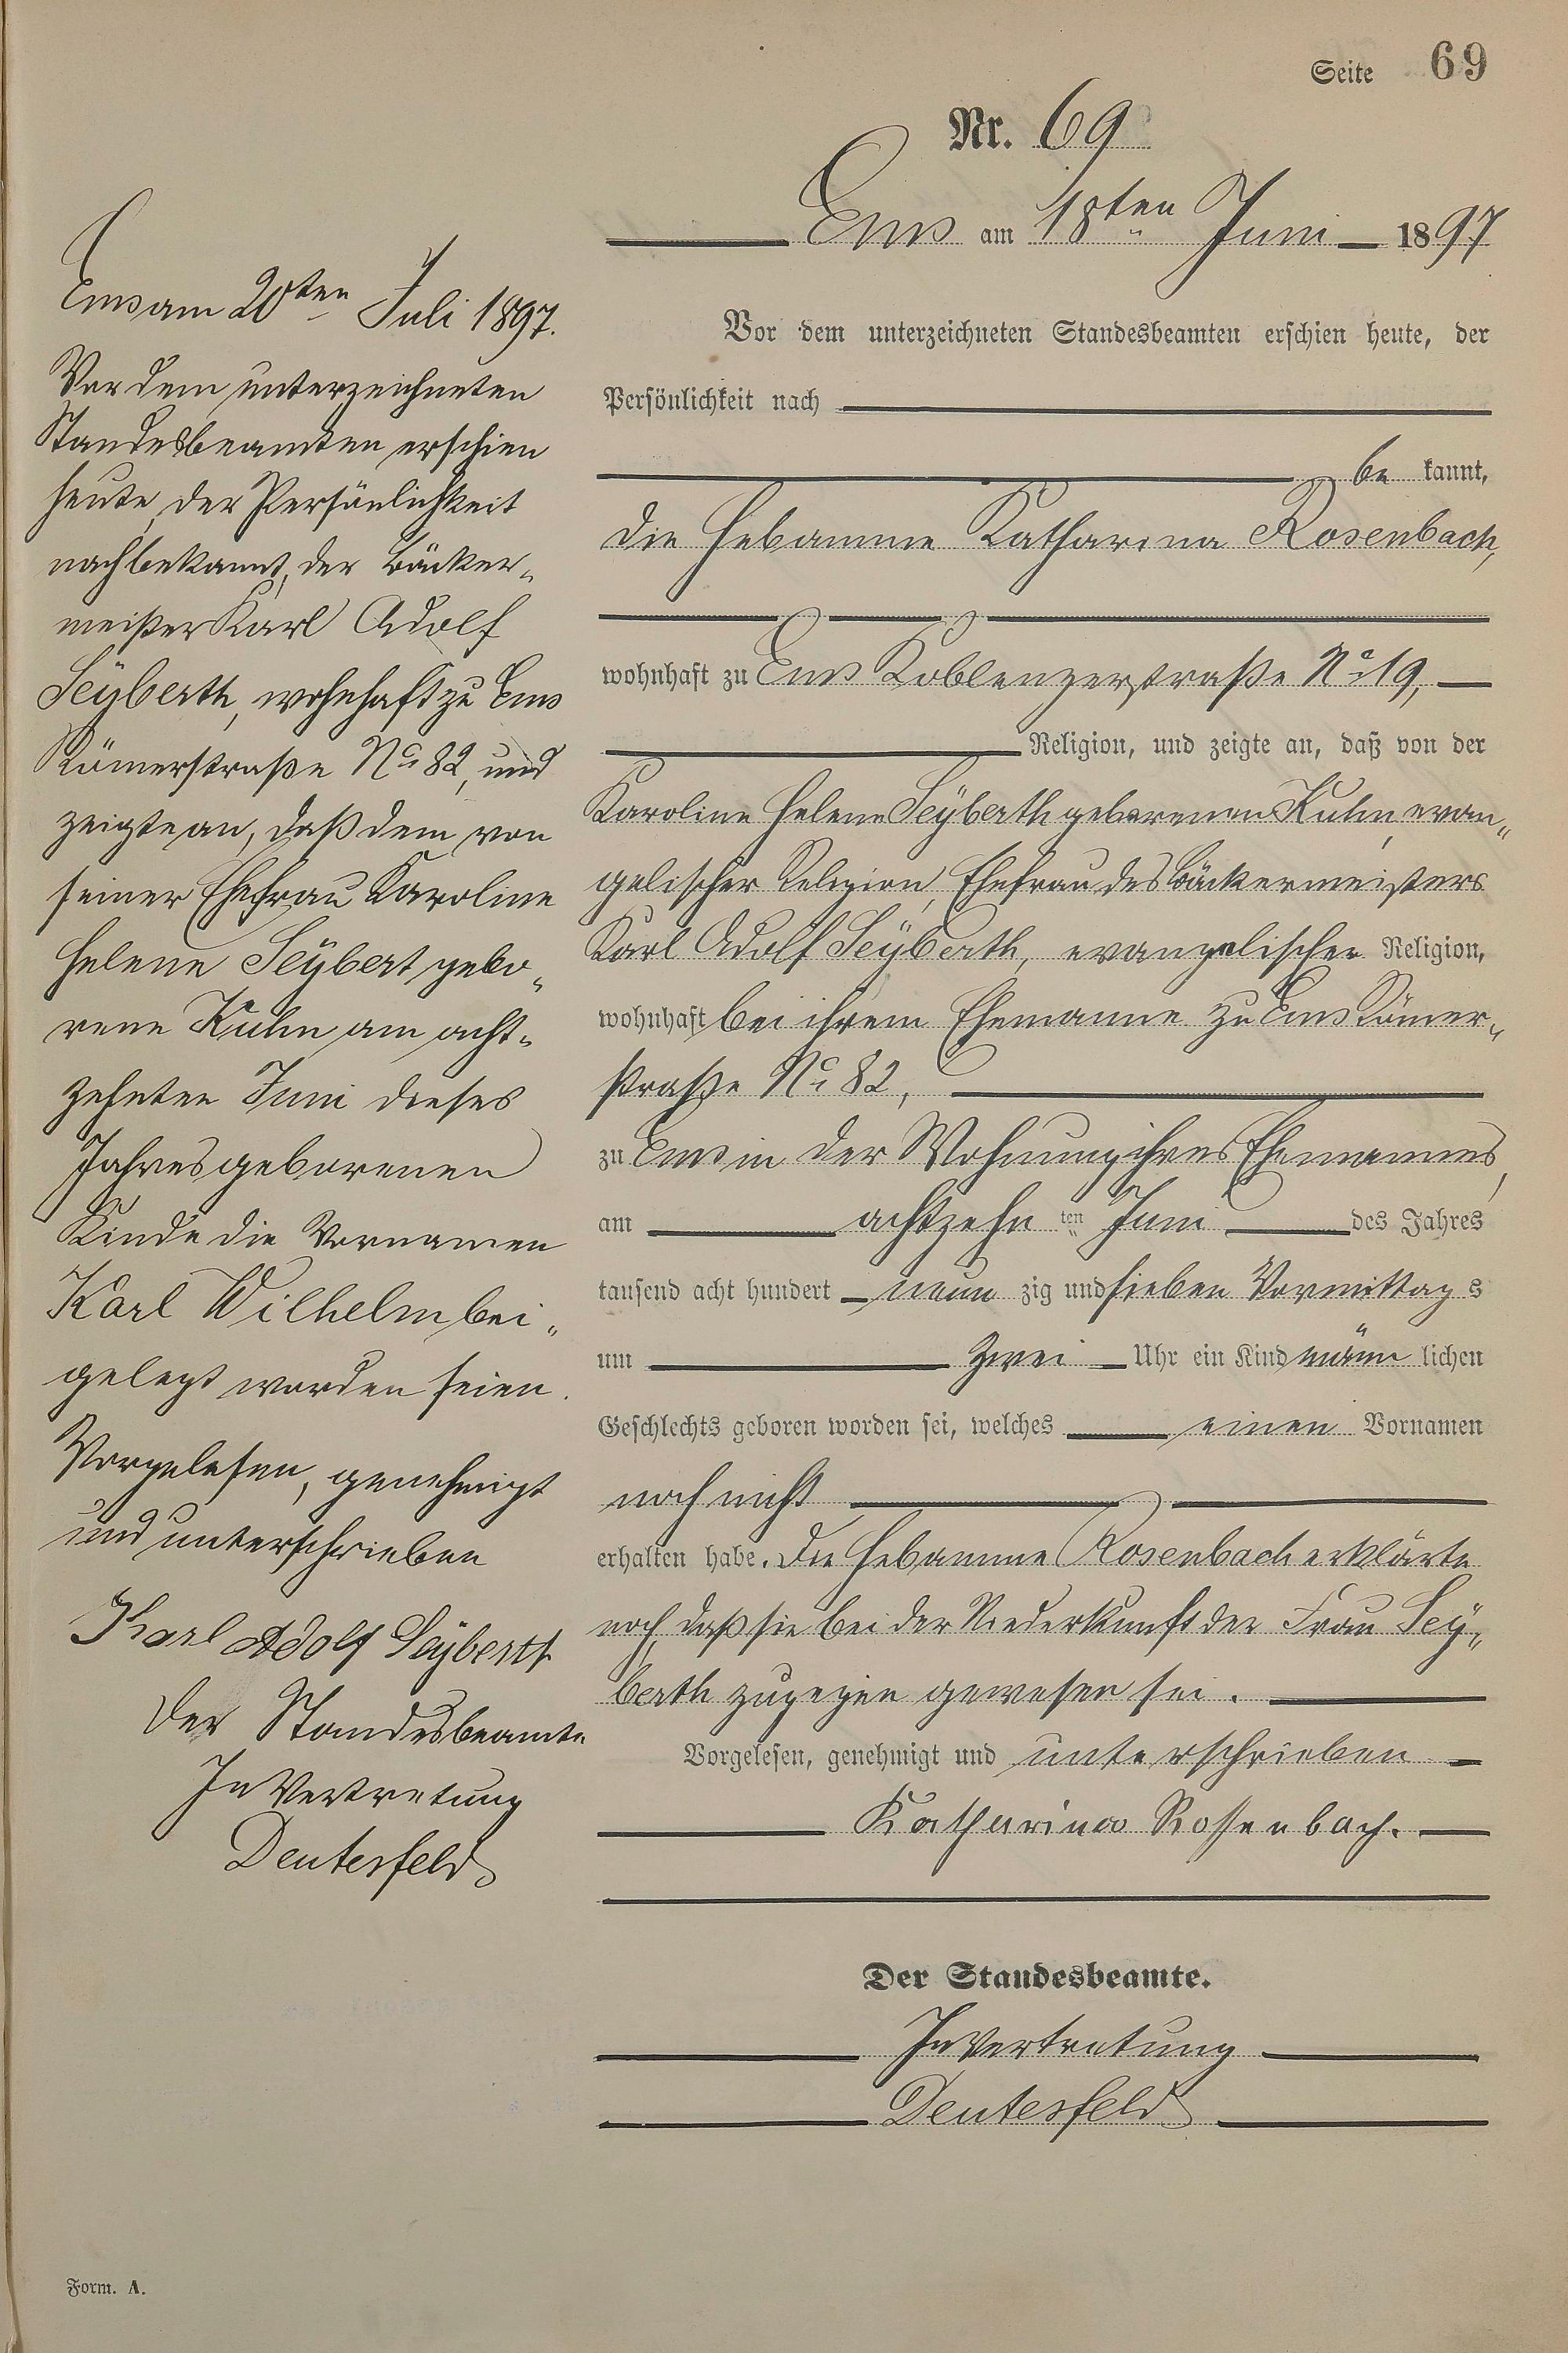 Seite 69
Nr. 69
Ems am 18ten Juni 1897
Vor dem unterzeichneten Standesbeamten erschien heute, der
Persönlichkeit nach
be kannt,
die Hebamme Katharina Rosenbach,
wohnhaft zu Ems Koblenzerstraße No 19,
Religion, und zeigte an, daß von der
Karoline Helene Seÿberth geborenen Kuhn, evan„
gelischer Religion, Ehefrau des Bäckermeisters
Karl Adolf Seÿberth, evangelischer Religion,
wohnhaft bei ihrem Ehemanne zu Ems Römer„
straße No 82,
zu Ems in der Wohnung ihres Ehemannes,
am achtzehn ten Juni des Jahres
tausend acht hundert neun zig und sieben Vormittag s
um zwei Uhr ein Kind männ lichen
Geschlechts geboren worden sei, welches einen Vornamen
noch nicht
erhalten habe. Die Hebamme Rosenbach erklärte
noch, daß sie bei der Niederkunft der Frau Seÿ„
berth zugegen gewesen sei.
Vorgelesen, genehmigt und unterschrieben
Katharina Rossenbach.
Der Standesbeamte.
In Vertretung
Deutesfeld
Ems am 20ten Juli 1897.
Vor dem unterzeichneten
Standesbeamten erschien
heute, der Persönlichkeit
nach bekannt, der Bäcker„
meister Karl Adolf
Seÿberth, wohnhaft zu Ems
Römerstraße No 82, und
zeigte an, daß dem von
seiner Ehefrau Karoline
Helene Seÿbert gebo„
rene Kuhn am acht„
zehnten Juni dieses
Jahres geborenen
Kinde die Vornamen
Karl Wilhelm bei„
gelegt worden seien.
Vorgelesen, genehmigt
und unterschrieben
Karl Adolf Seÿberth
Der Standesbeamte
In Vertretung
Deutesfeld
Form. A.